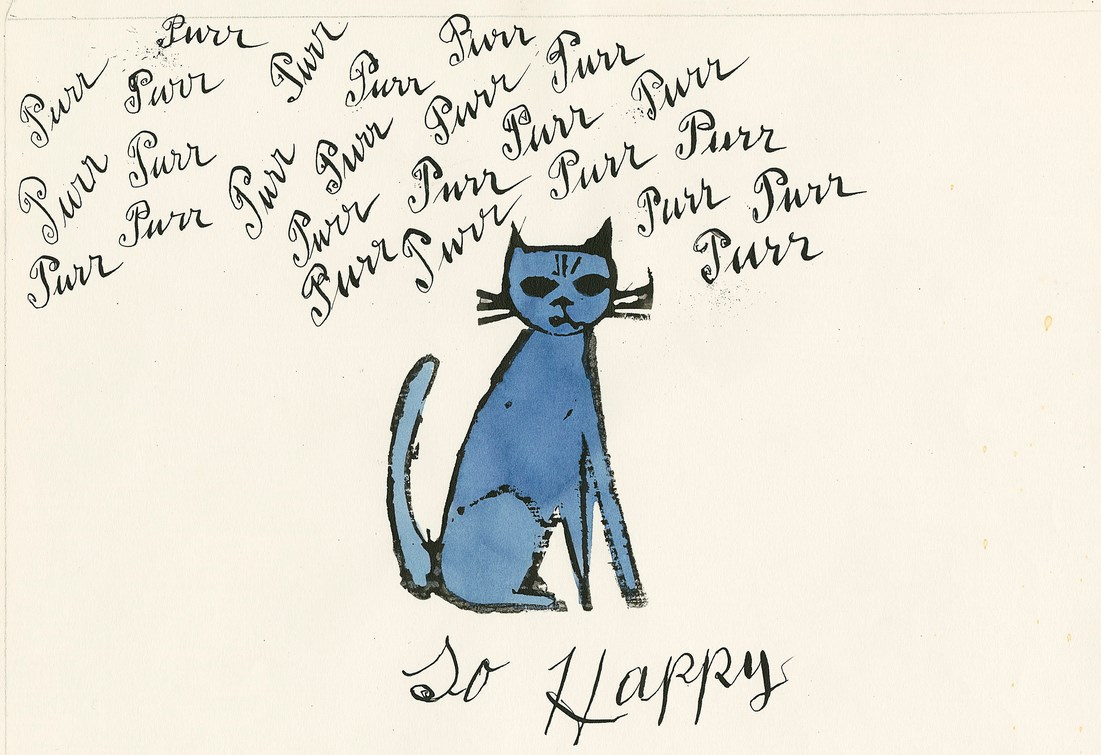 Purr Purr Purr Purr
Purr Purr Purr Purr Purr
Purr Purr Purr Purr
Purr Purr Purr Purr
Purr Purr Purr Purr Purr
Purr Purr Purr
So Happy